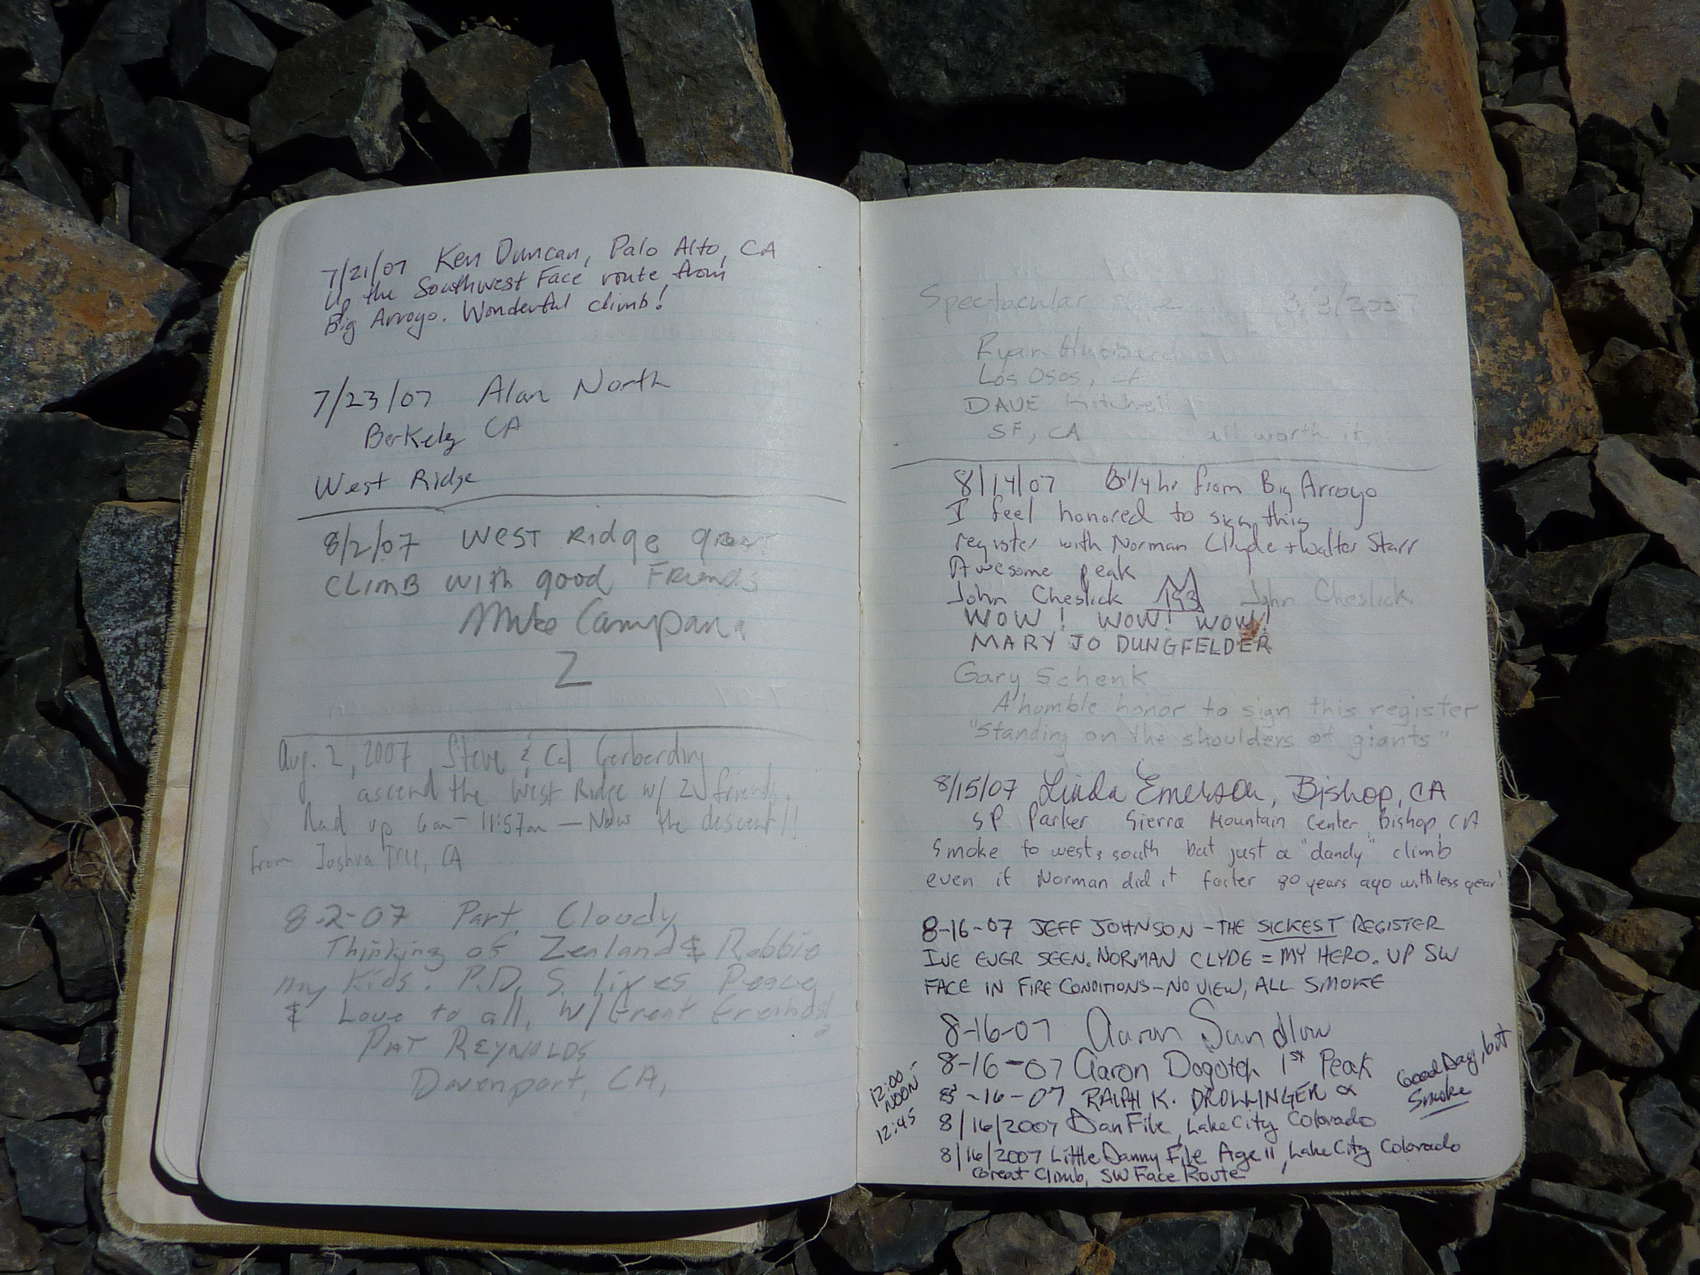 7/21/07 Ken Duncan, Palo Alto, CA
Up the Southwest Face route from
Big Arroyo. Wonderful climb!
7/23/07 Alan North
Berkely CA
West Ridge
8/2/07 West Ridge great
climb with good Friends
Mike Campan
Z
Aug. 2, 2007 Steve & Gerberding
ascend the West Ridge w/ 2 friends.
up 6am - 11:57am — Now the descent!!
from Joshua Tree, CA
8-2-07 Part. Cloudy
Thinking of Zealand & Robbie
my Kids. P.D.S. lives Peace
& Love to all, w/ Great Friends!
Pat Reynolds
Davenport, CA,
Spectacular 2007
Ryan
Los Osos,
DAVE Mitchell
SF, CA all worth it,
8/14/07 1/4 hr from Big Arroyo
I feel honored to sign this
register with Norman Clyde + Walter Starr
Awesome peak
John Cheslick John Cheslick
WOW! WOW! WOW!
MARY JO DUNGFELDER
Gary Schenk
A humble honor to sign this register
"Standing on the shoulders of giants"
8/15/07 Linda Emerson, Bishop, CA
SP Parker Sierra Mountain Center Bishop, CA
Smoke to west & south but just a "dandy" climb
even if Norman did it faster 80 years ago with less gear!
8-16-07 JEFF JOHNSON - THE SICKEST REGISTER
I'VE EVER SEEN. NORMAN CLYDE = MY HERO. UP SW
FACE IN FIRE CONDITIONS - NO VIEW, ALL SMOKE
8-16-07 Aaron Sandlow
8-16-07 Aaron 1st Peak
12:00 - NOON
12:45
8-16-07 RALPH K. DROLLINGER
Good Day, but
Smoke
8/16/2007 Dan File, Lake City Colorado
8/16/2007 Little Danny File Age 11, Lake City Colorado
Great Climb, SW Face Route